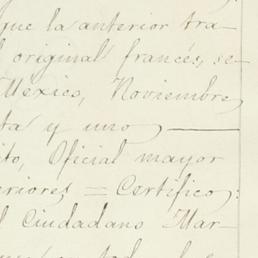 que la anterior tra
l original francés, se
México, Noviembre
ta y uno
ito, Oficial mayor
eriores = Certifico:
l Ciudadano Mar